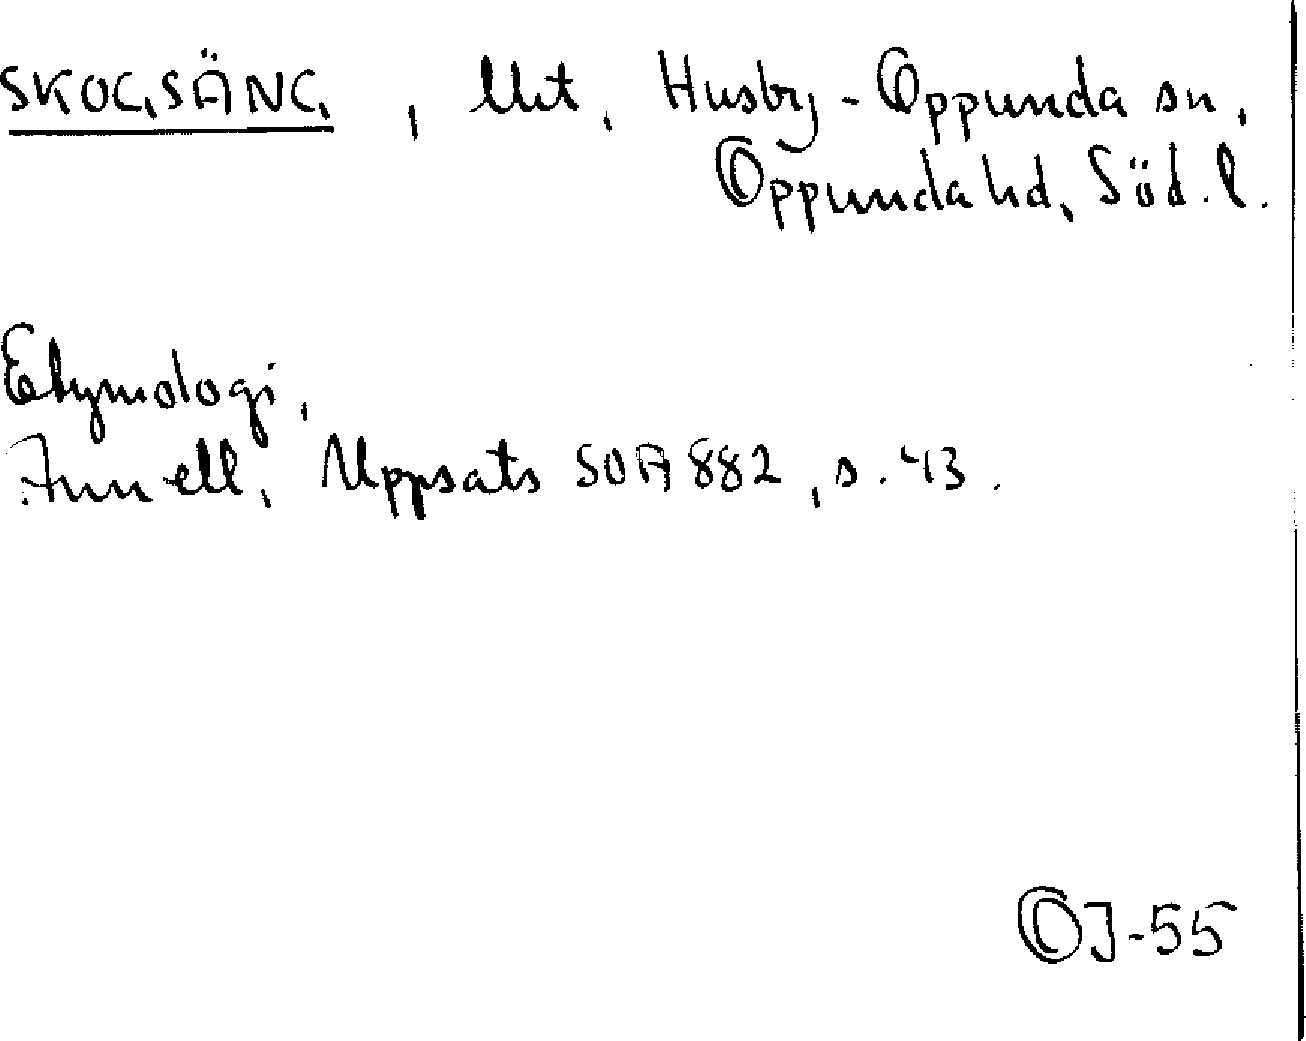 SKOGSÄNG, Utt. Husby-Oppunda sn,
Oppunda hd, Söd. l.
Etymologi,
Uppsats SOA 882, s. 43.
OJ-55